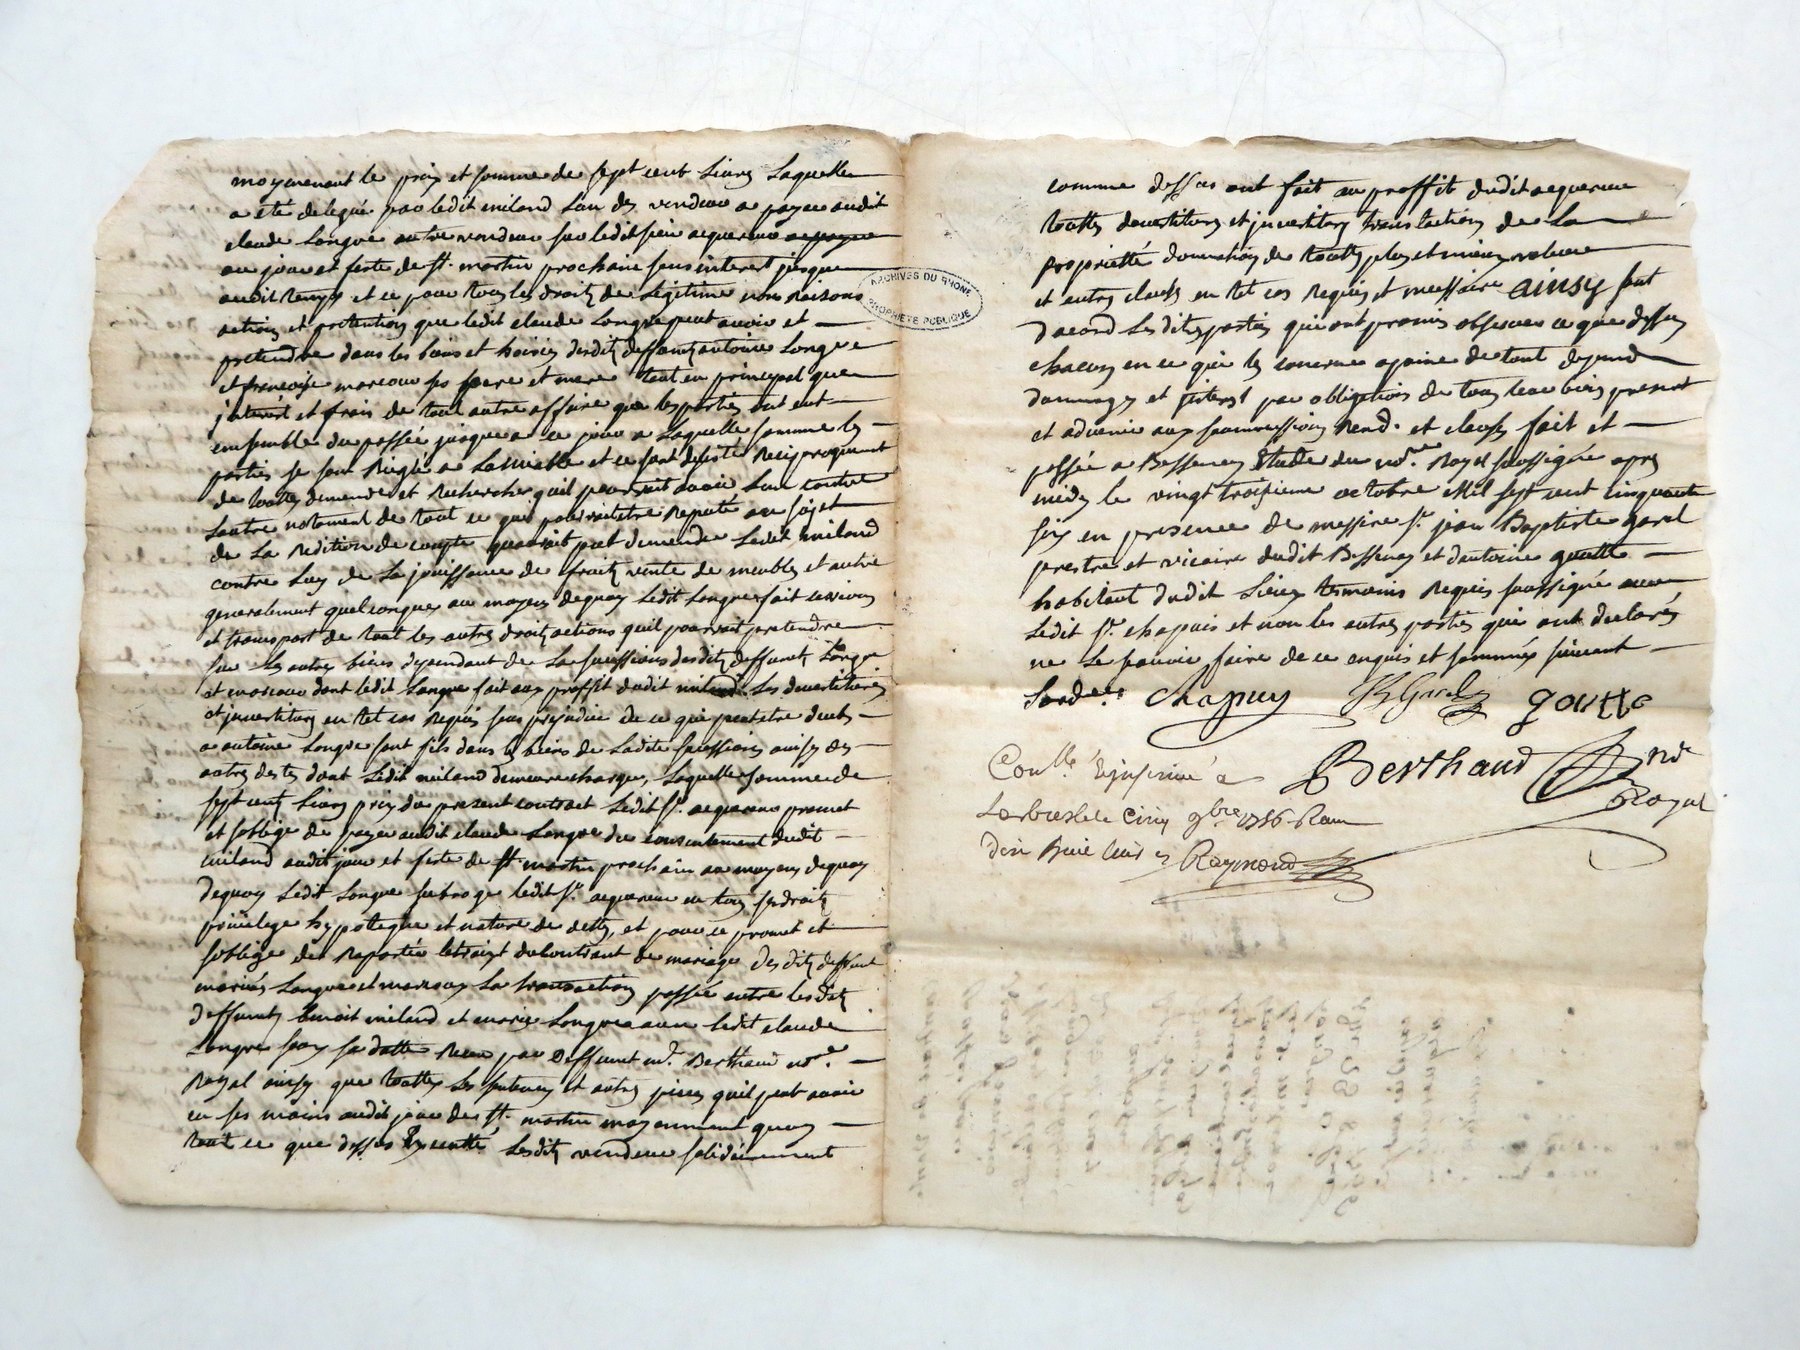 moyennant le prix et somme de sept cent Livres Laquelle
a été deleguée par ledit miland L'un des vendeur a payer audit
claude Longre autre vendeur par ledit sieur acquereur
au jour et feste de st. martin prochain sans interest jusque
audit temps et ce pour tous les droits de Legitime noms raisons
actions et pretentions que ledit claude Longre peut avoir et
pretendre dans les biens et hoiries desdits deffunts antoine Longre
et francoise moreau ses pere et mere tant en principal que
interest et frais de tout autre affaire que les parties ont eut
ensemble du passée jusque a ce jour a Laquelle somme les
parties se sont Reiglé a Lamiable et ce sont desisté Reciproquement
de toutes demandes et Recherches quil pourroit avoir L'un contre
Lautre notament de tout ce qui pourroit etre Reputé au sujet
de La Redition de compte quauroit peut demander Ledit miland
contre Luy de La jouissance de fruits vente de meubles et autre
generalement quelconques au moyen de quoy Ledit Longre fait cession
et transport de tout les autres droits actions quil pourroit pretendre
sur Les autres biens dependant de La succession desdits deffunts Longre
et moreau dont ledit Longre fait aux proffit dudit miland Les devestitures
et jnvestitures en tel cas Requis sans prejudice de ce qui peut etre deub
a antoine Longre sont fils dans les biens de Ladite succession ainsy des
autres dettes dont Ledit miland demeure chargé, Laquelle somme de
sept cents Livres prix du present contract Ledit sr. acquereur promet
et soblige de payer audit claude Longre du consentement dudit
miland audit jour et feste de st. martin prochain au moyen de quoy
de quoy Ledit Longre subroge ledit sr. acquereur en tous ses droits
privilege hypoteque et nature de dette, et pour ce promet et
soblige de Raporter lextrait du contract de mariage des dits deffunt
mariés Longre et moreau La transaction passée entre lesdits
deffunts benoit miland et marie Longre avec ledit claude
Longre sous sa datte Receu par deffunt me. Berthaud nore.
Royal ainsy que touttes Les sentences et autres pieces quil peut avoir
en ses mains audit jour de st. martin moyennant quoy
tout ce que dessus Executté, Lesdits vendeur solidairement
ARCHIVES DU RHÔNE
PROPRIÉTÉ PUBLIQUE
comme dessus ont fait au proffit dudit acquereur
touttes devestitures et jnvestitures translactions de La
propriété donnations de touttes plus et mieux valeur
et autres clauses en tel cas Requis et nessaire ainsy sont
dacord Lesdites parties qui ont promis observer ce que dessus
chacun en ce qui les concerne a peine de tout depend
dommages et jnterest par obligations de tous leur bien present
et advenir aux soumissions Rend. et clauses fait et
passée a Bessenay Etude du nore. Royal soussigné apres
midy le vingt troisieme octobre Mil sept cent cinquante
six en presence de messire sr. jean Baptiste garel
prestre et vicaire dudit Bessenay et dantoine goutte
habitant dudit Lieux temoins Requis soussigné avec
Ledit sr. chapuis et non les autres parties qui ont declarés
ne Le savoir faire de ce enquis et sommés suivant
Lord.ce chapuy JBGarel goutte
Conllé & jnsinué a Berthaud nre
Larbresle le Cinq 9bre 1756 Royal
Raymond